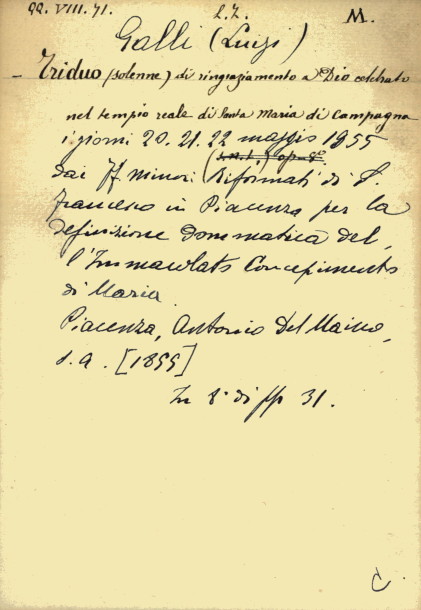 QQ. VIII. 71. 2.7. M.
Galli (Luigi)
- Triduo (solenne) di ringraziamento a Dio celebrato
nel tempio reale di Santa Maria di Campagna
i giorni 20. 21. 22 maggio 1855
dai FF. Minori Riformati di S.
Francesco in Piacenza per la
definizione dommatica del,
l'Immacolato Concepimento
di Maria.
Piacenza, Antonio Del Maino,
s. a. [1855]
In 8° di pp 31.
C